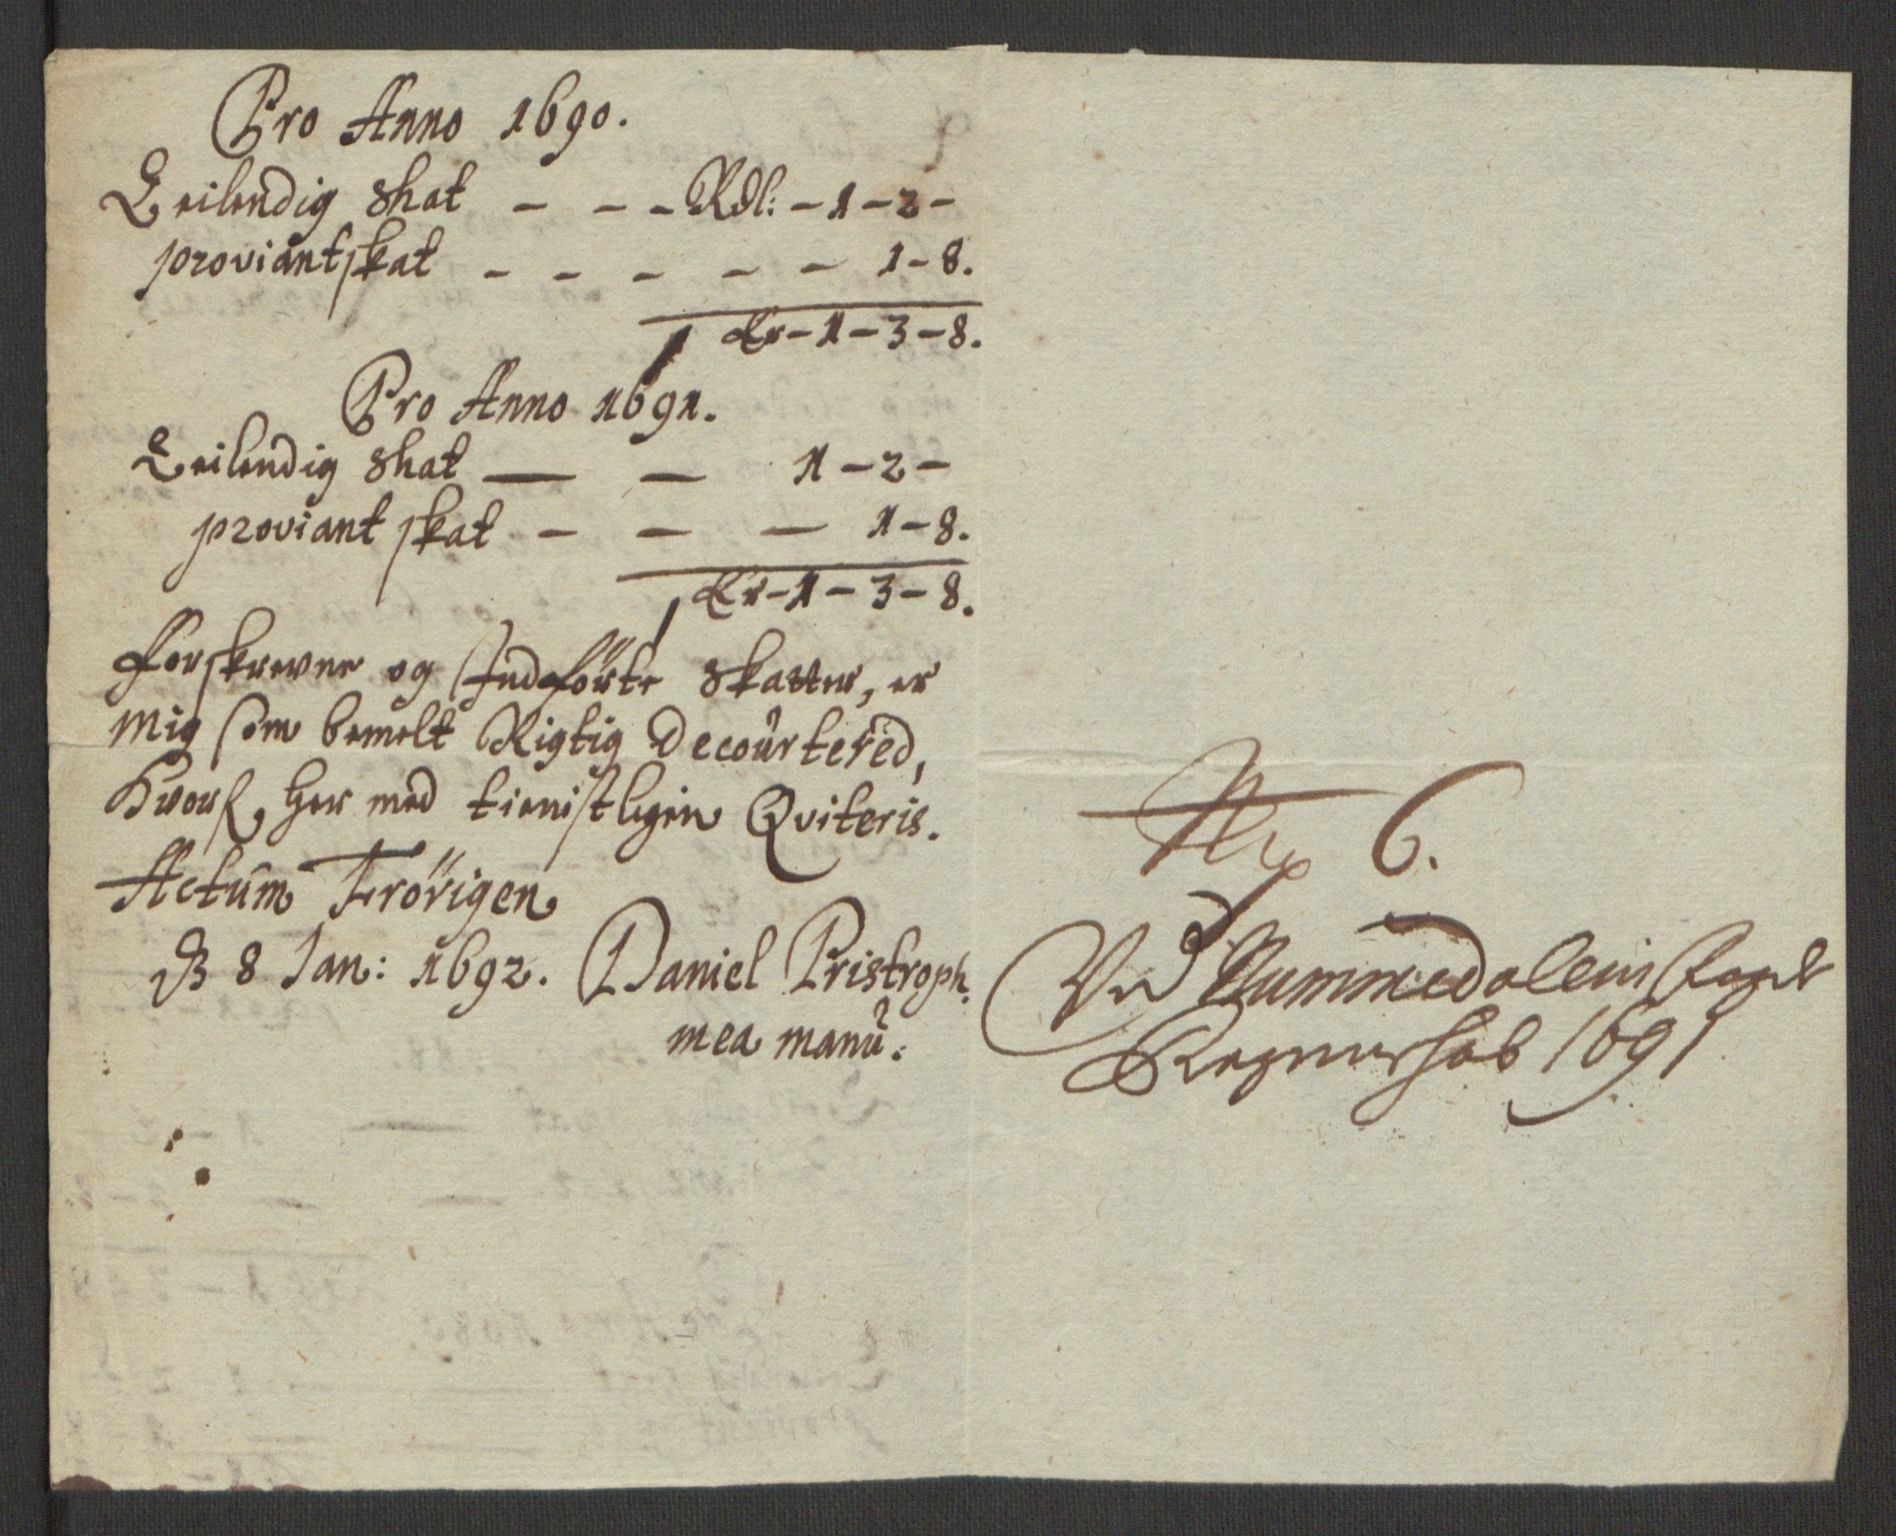 Pro Anno 1690.
Leilendig skat - - - Rdl: - 1 - 2 -
proviantskat - - - - - 1 - 8.
Er - 1 - 3 - 8.
Pro Anno 1691.
Leilendig skat — — 1 - 2 -
proviant skat - — — 1 - 8.
Er - 1 - 3 - 8.
Forskrevne og Indförte Skatter, er
mig som bemelt Rigtig Decourtered,
Hvorf. her med tienistligen Qviteris.
Actum Frörigen
D 8 Jan: 1692. Daniel Pristroph.
mea manu.
No 6.
Ved Nummedalens Fogd
Regnershab 1691